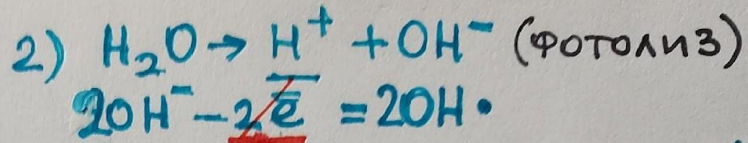 2) H₂O → H⁺ + OH⁻ (фотолиз)
2OH⁻ - 2ē = 2OH•